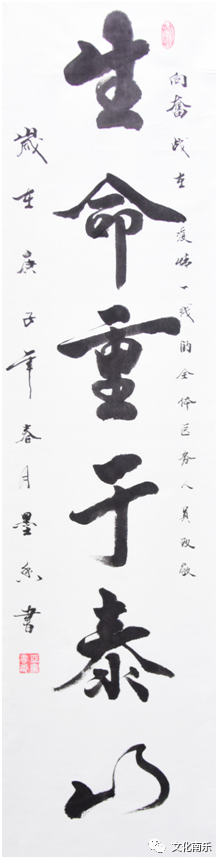 向奋战在疫情一线的全体医务人员致敬
生命重于泰山
岁在庚子年春月墨香书
文化南乐